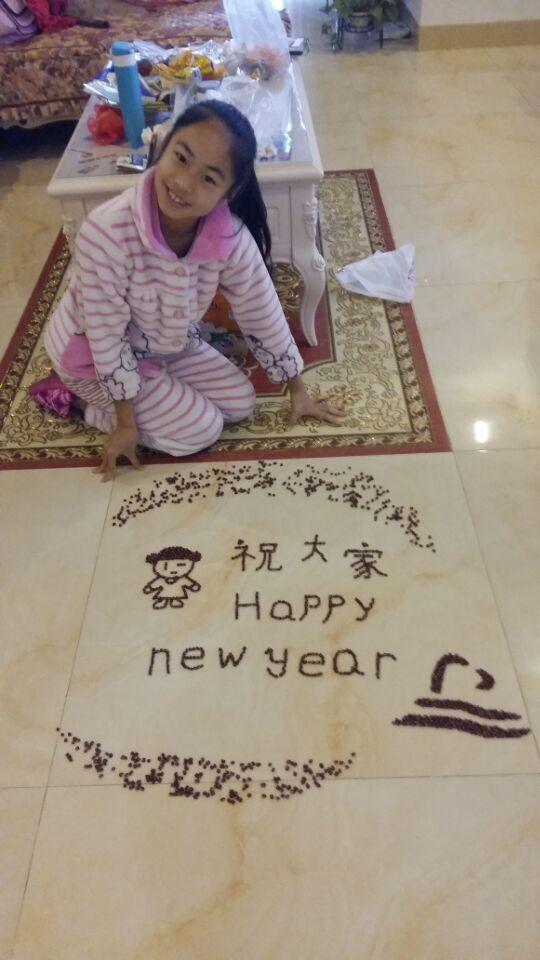 祝大家
Happy
new year